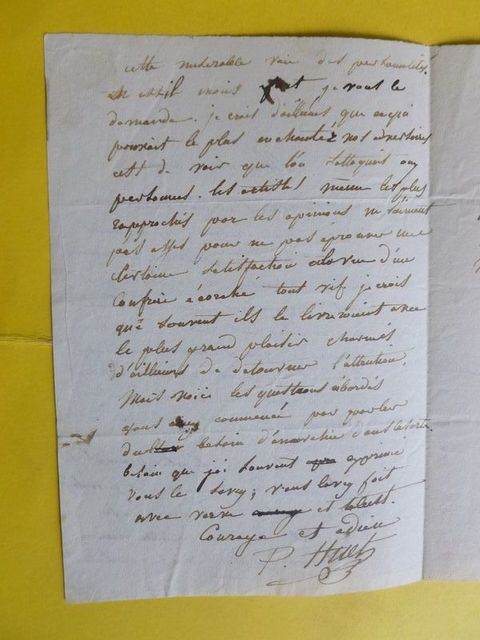 cette miserable voie des personnalités.
N'est il moins je vous le
demande. je crois d'ailleurs que ce qui
pourrait le plus enchanter nos adversaires
c'est de voir que l'on s'attaque aux
personnes. les artistes même les plus
rapprochés par les opinions ne s'aiment
pas assés pour ne pas éprouver une
certaine satisfaction à la vue d'un
confrère écorché tout vif je crois
que souvent ils le livreraient avec
le plus grand plaisir charmés
d'ailleurs de detourner l'attention.
Mais voici les questions abordés
vous commencé par parler
du besoin d'anarchie dans les arts
besoin que j'ai souvent exprimé
vous le savez; vous l'avez fait
avec verve et talent.
Courage et adieu
P. Huet